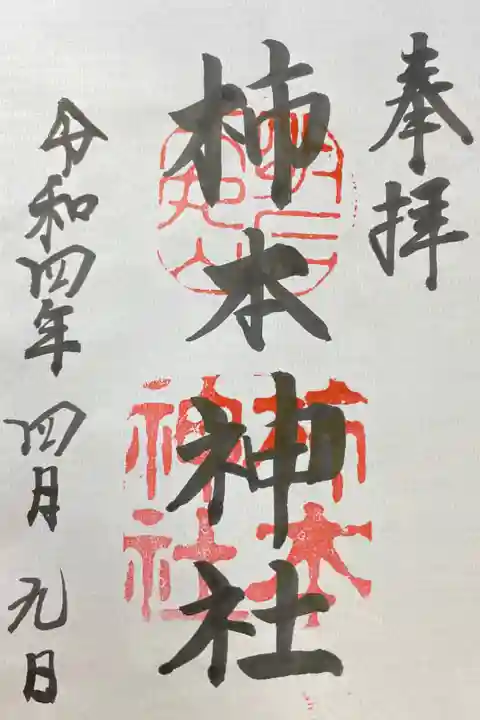 奉拝
柿本神社
柿本
神社
令和四年 四月 九日